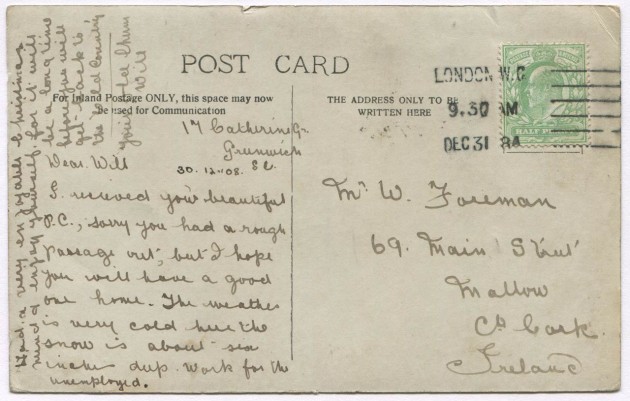 POST CARD
For Inland Postage ONLY, this space may now
be used for Communication
THE ADDRESS ONLY TO BE
WRITTEN HERE
LONDON W.C
9.30 AM
DEC 31
HALF
17 Catherine Gr.
Grunwich
S.E.
30.12.08.
Dear Will
I recieved your beautiful
P.C., sorry you had a rough
passage out, but I hope
you will have a good
one home. The weather
is very cold here the
snow is about six
inches deep. Work for the
unemployed.
Had a very enjoyable Christmas
mind enjoy yourself, for it will
be a long time
before you will
get back to
the old Country
Your old Chum
Will
Mr W. Foreman
69. Main Street
Mallow
Co Cork.
Ireland